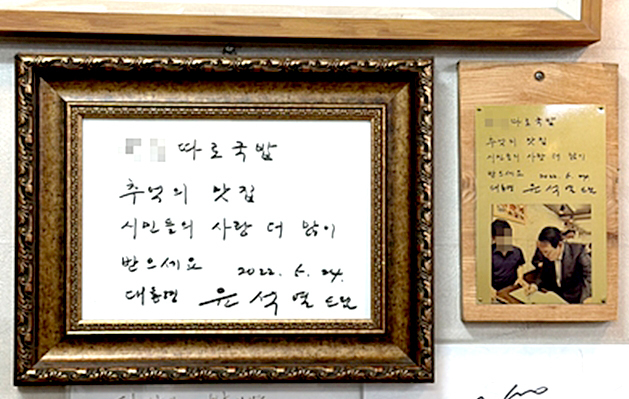 따로국밥
추억의 맛집
시민들의 사랑 더 많이
받으세요 2022. 5. 24.
대통령 윤석열 드림
따로국밥
추억의 맛집
시민들의 사랑 더 많이
받으세요 2022. 5. 24.
대통령 윤석열 드림